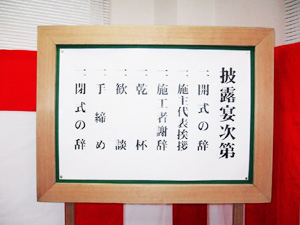 披露宴次第
一、開式の辞
一、施主代表挨拶
一、施工者謝辞
一、乾杯
一、歓談
一、手締め
一、閉式の辞